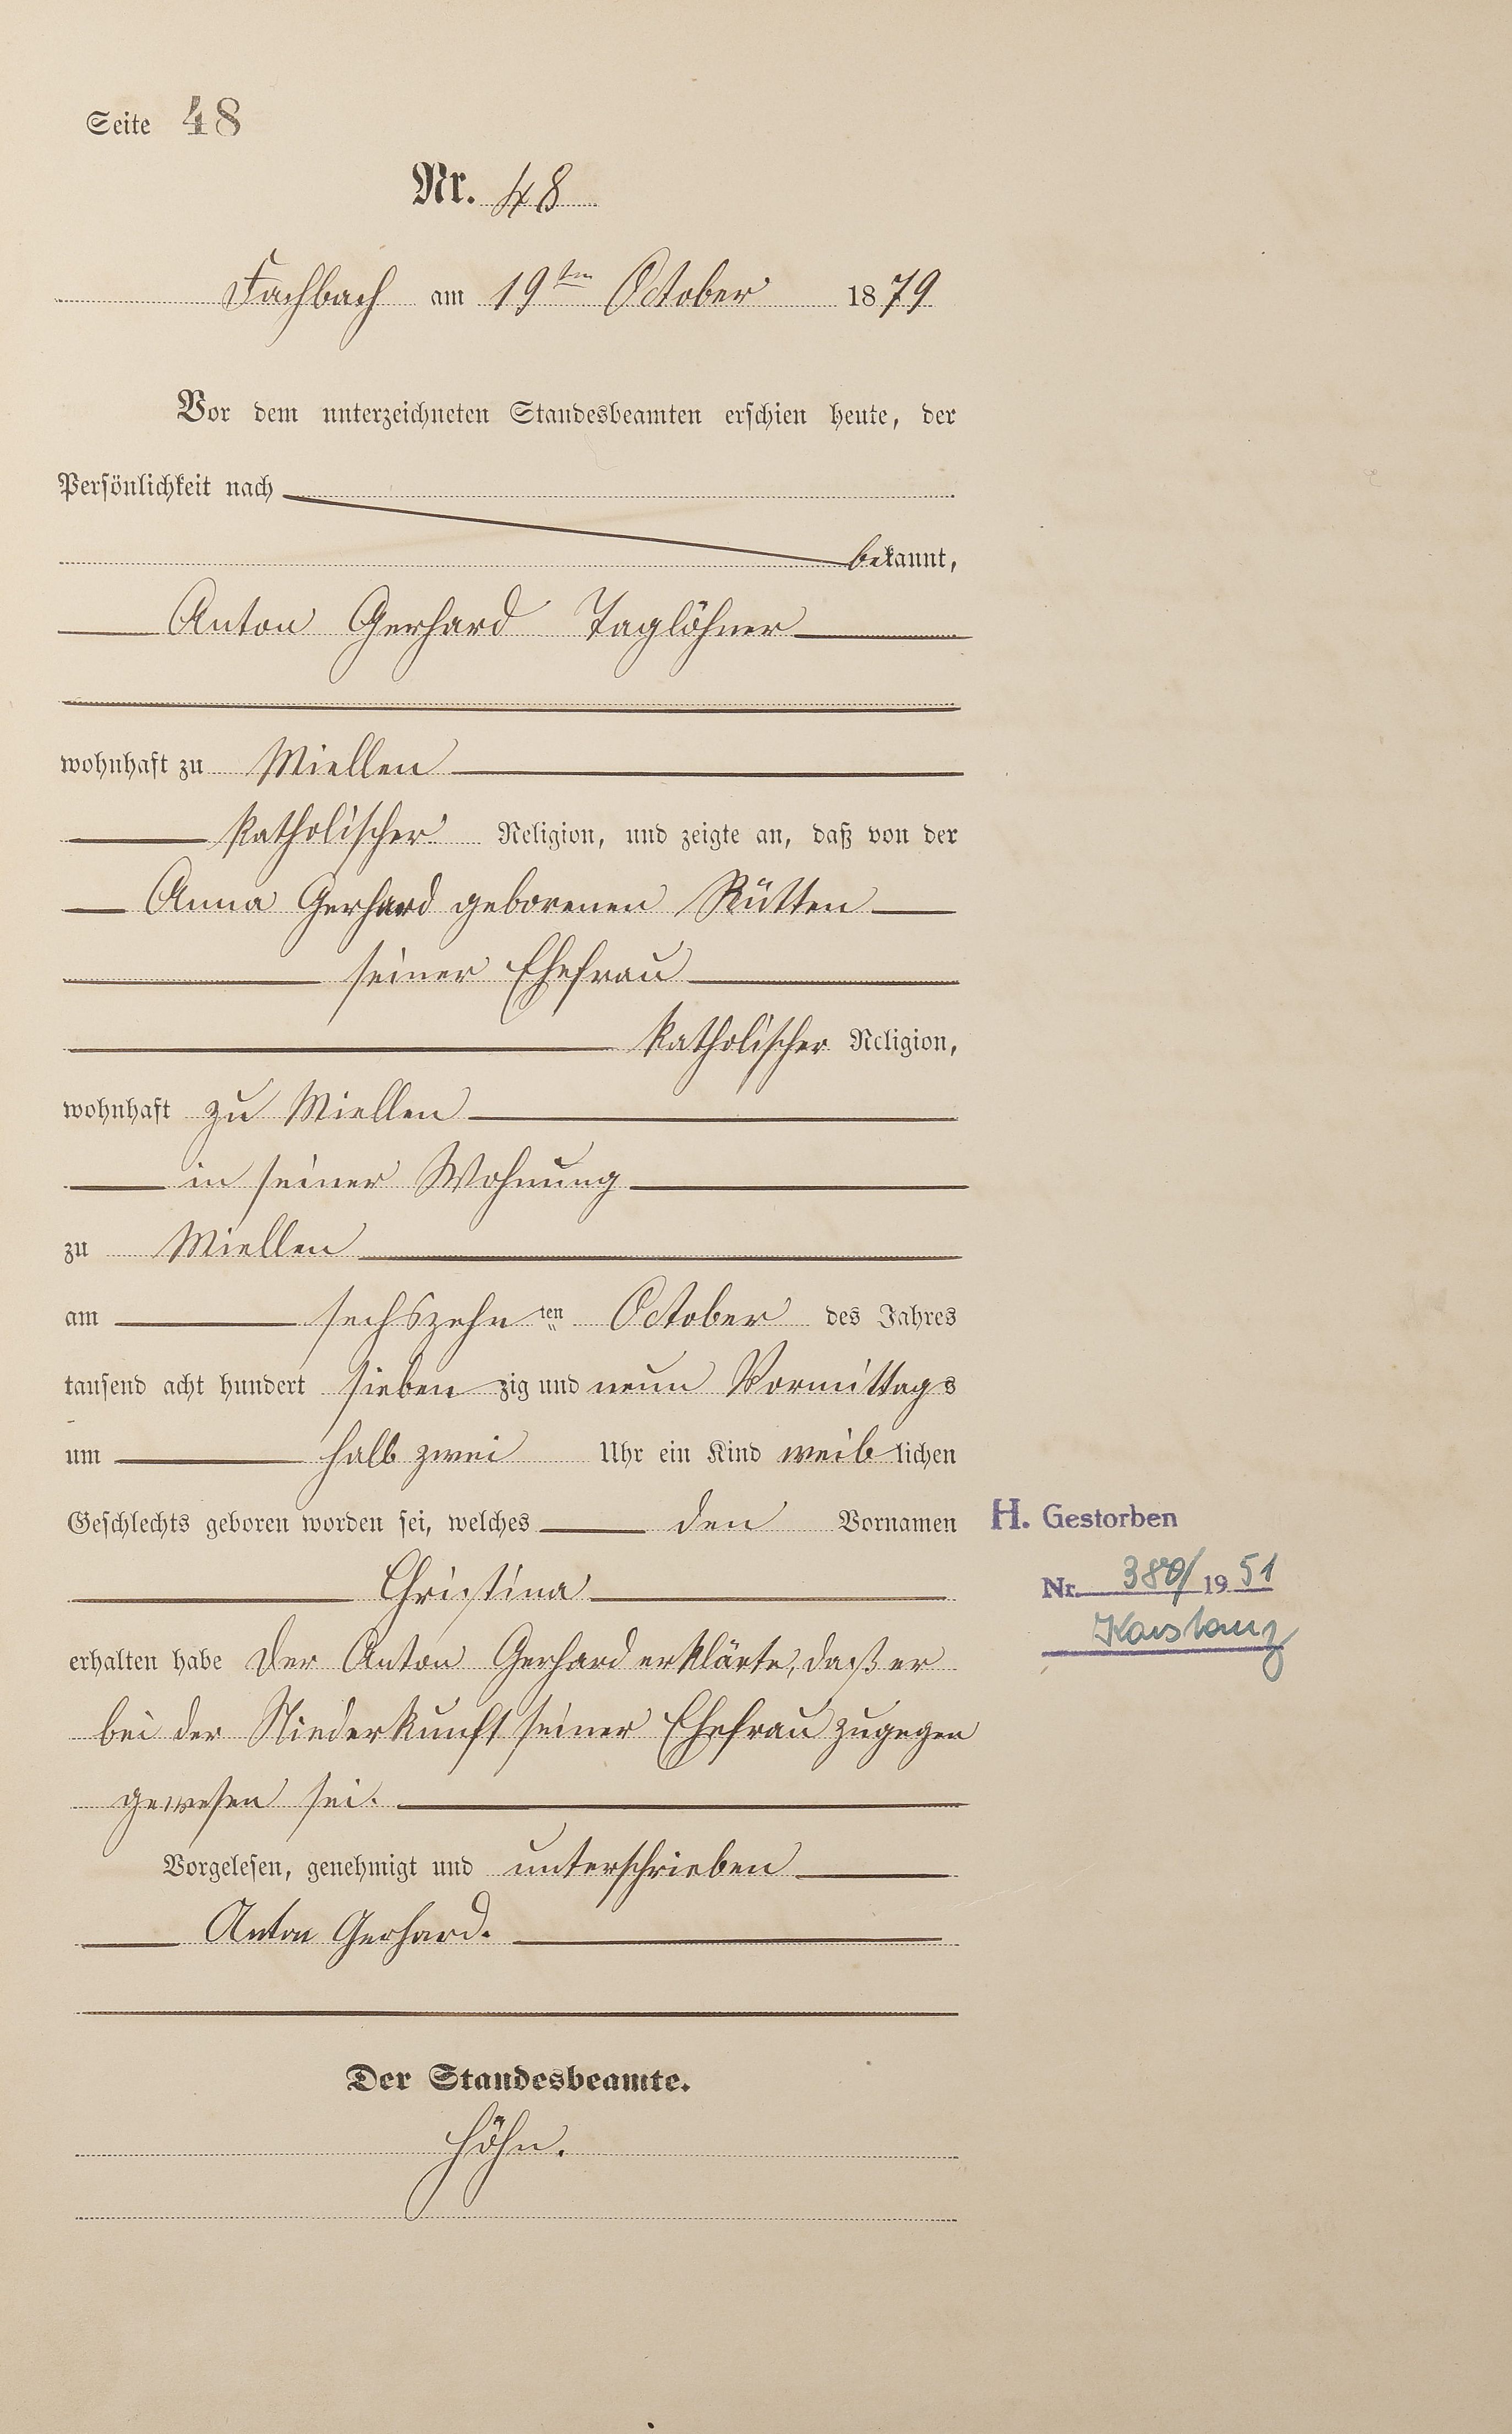 Seite 48
Nr. 48
Fachbach am 19ten October 1879
Vor dem unterzeichneten Standesbeamten erschien heute, der
Persönlichkeit nach
bekannt,
Anton Gerhard Taglöhner
wohnhaft zu Miellen
katholischer Religion, und zeigte an, daß von der
Anna Gerhard geborenen Rütten
seiner Ehefrau
katholischer Religion,
wohnhaft zu Miellen
in seiner Wohnung
zu Miellen
am sechszehnten October des Jahres
tausend acht hundert siebenzig und neun Vormittags
um halb zwei Uhr ein Kind weiblichen
Geschlechts geboren worden sei, welches den Vornamen
Christina
erhalten habe Der Anton Gerhard erklärte, daß er
bei der Niederkunft seiner Ehefrau zugegen
gewesen sei.
Vorgelesen, genehmigt und unterschrieben
Anton Gerhard.
Der Standesbeamte.
Höhn.
H. Gestorben
Nr. 380/1951
Konstanz